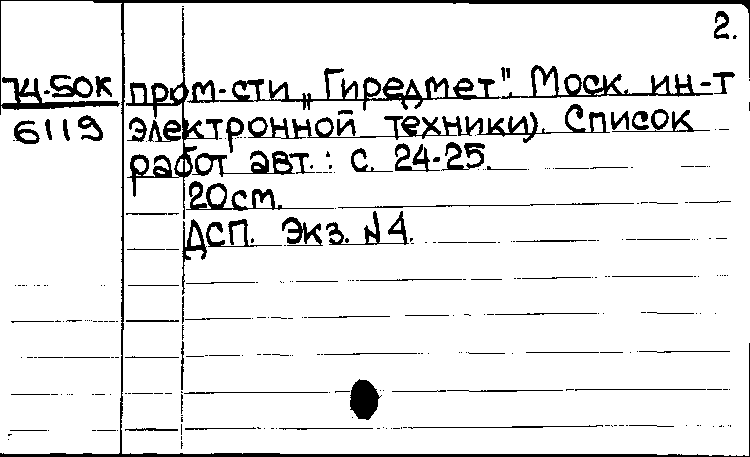 2.
74-50К пром-сти „Гиредмет". Моск. ин-т
6119 электронной техники). Список
работ авт.: с. 24-25.
20см.
ДСП. Экз. №4.